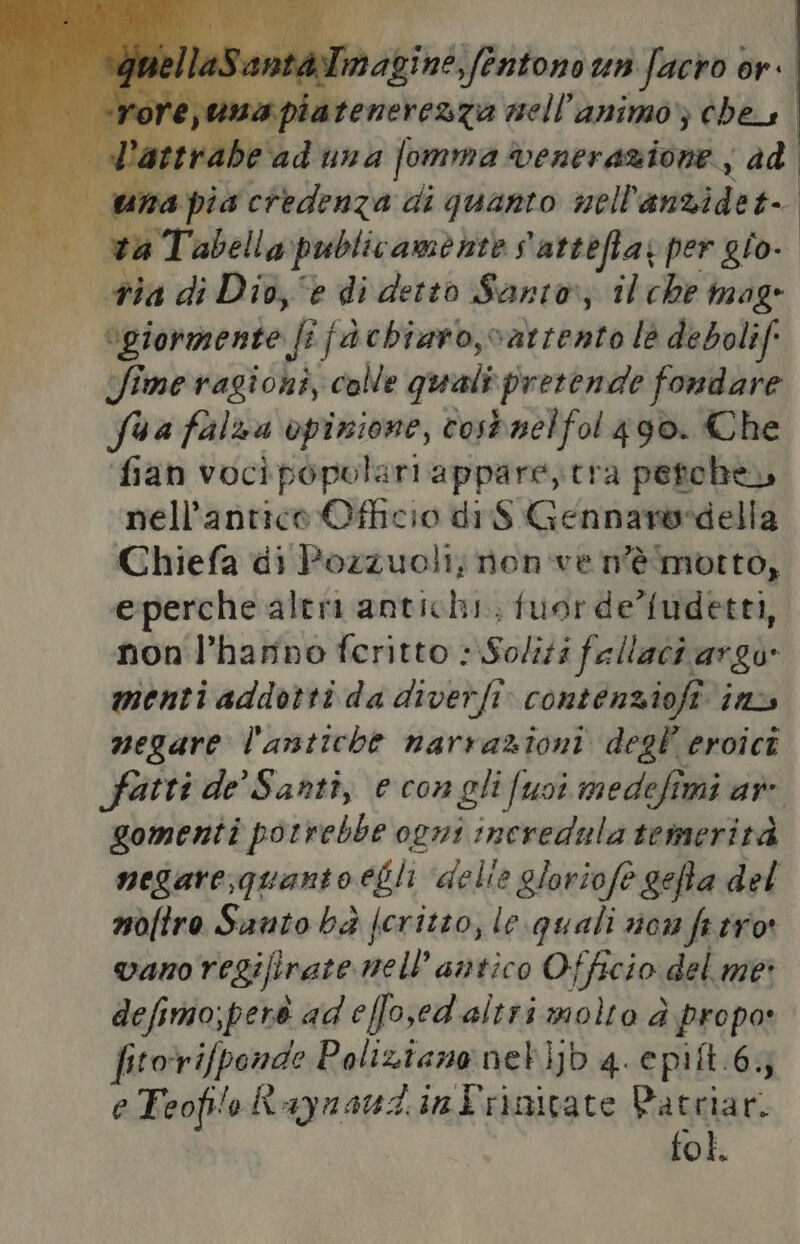 quellaSantaImagine,ſentono un ſacro or-
rore,una piatenerezza nell'animo; che
l'attrahe ad una ſomma venerazione, ad
una pia credenza di quanto nell'anzidet-
ta Tabella publicamente s'atteſta; per glo-
ria di Dio, e di detto Santo, il che mag-
giormente ſi fà chiaro, attento le deboliſ-
ſime ragioni, colle quali pretende fondare
ſua falza opinione, così nel fol 490. Che
ſian voci popolari appare, tra perche
nell'antico Officio di S Gennaro della
Chieſa di Pozzuoli, non ve n'è motto,
e perche altri antichi, fuor de'ſudetti,
non l'hanno ſcritto : Soliti fallaci argo-
menti addotti da diverſi contenzioſi in
negare l'antiche narrazioni degl' eroici
fatti de' Santi, e con gli ſuoi medeſimi ar-
gomenti potrebbe ogni incredula temerità
negare,quanto egli delle glorioſe geſta del
noſtro Santo hà ſcritto, le quali non ſi tro-
vano regiſtrate nell' antico Officio del me-
deſimo;però ad eſſo,ed altri molto à propo-
ſito riſponde Poliziano nel ljb 4. epiſt.6.,
e Teofilo Raynaud. in Trinitate Patriar.
fol.